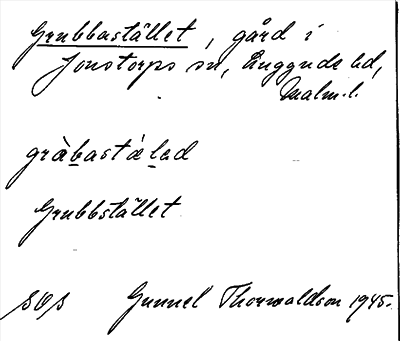 Grubbastället, gård i
Jonstorps sn, Luggude hd,
Malm. l.
gràbastálad
Grubbstället
SOS Gunnel Thorwaldson 1945.